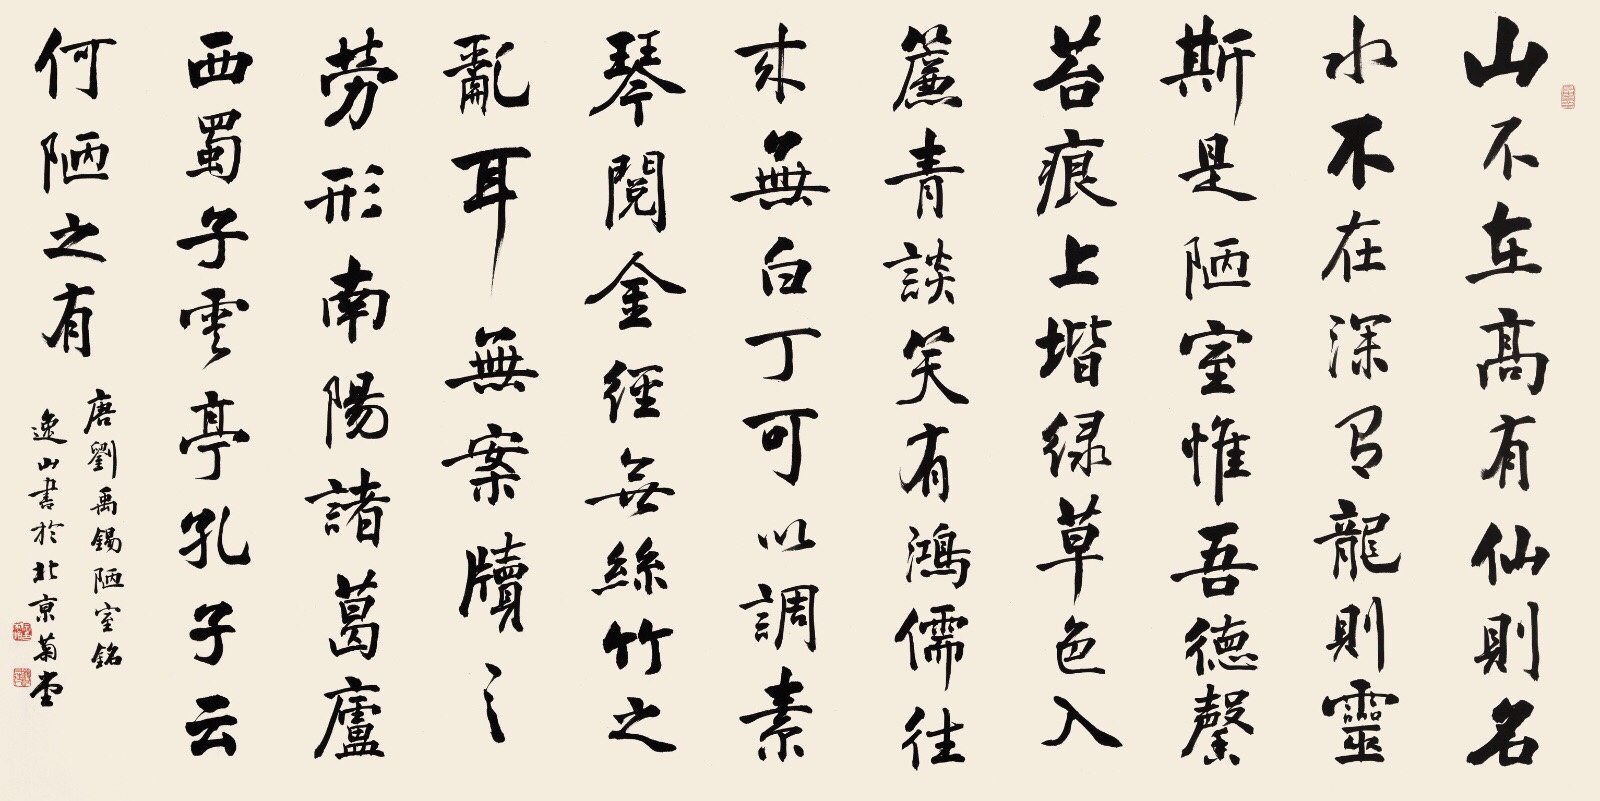 山不在高有仙則名
水不在深有龍則靈
斯是陋室惟吾德馨
苔痕上堦緑草色入
簾青談笑有鴻儒往
来無白丁可以調素
琴閲金經無絲竹之
亂耳無案牘之
勞形南陽諸葛廬
西蜀子雲亭孔子云
何陋之有
唐劉禹錫陋室銘
逸山書於北京菊堂